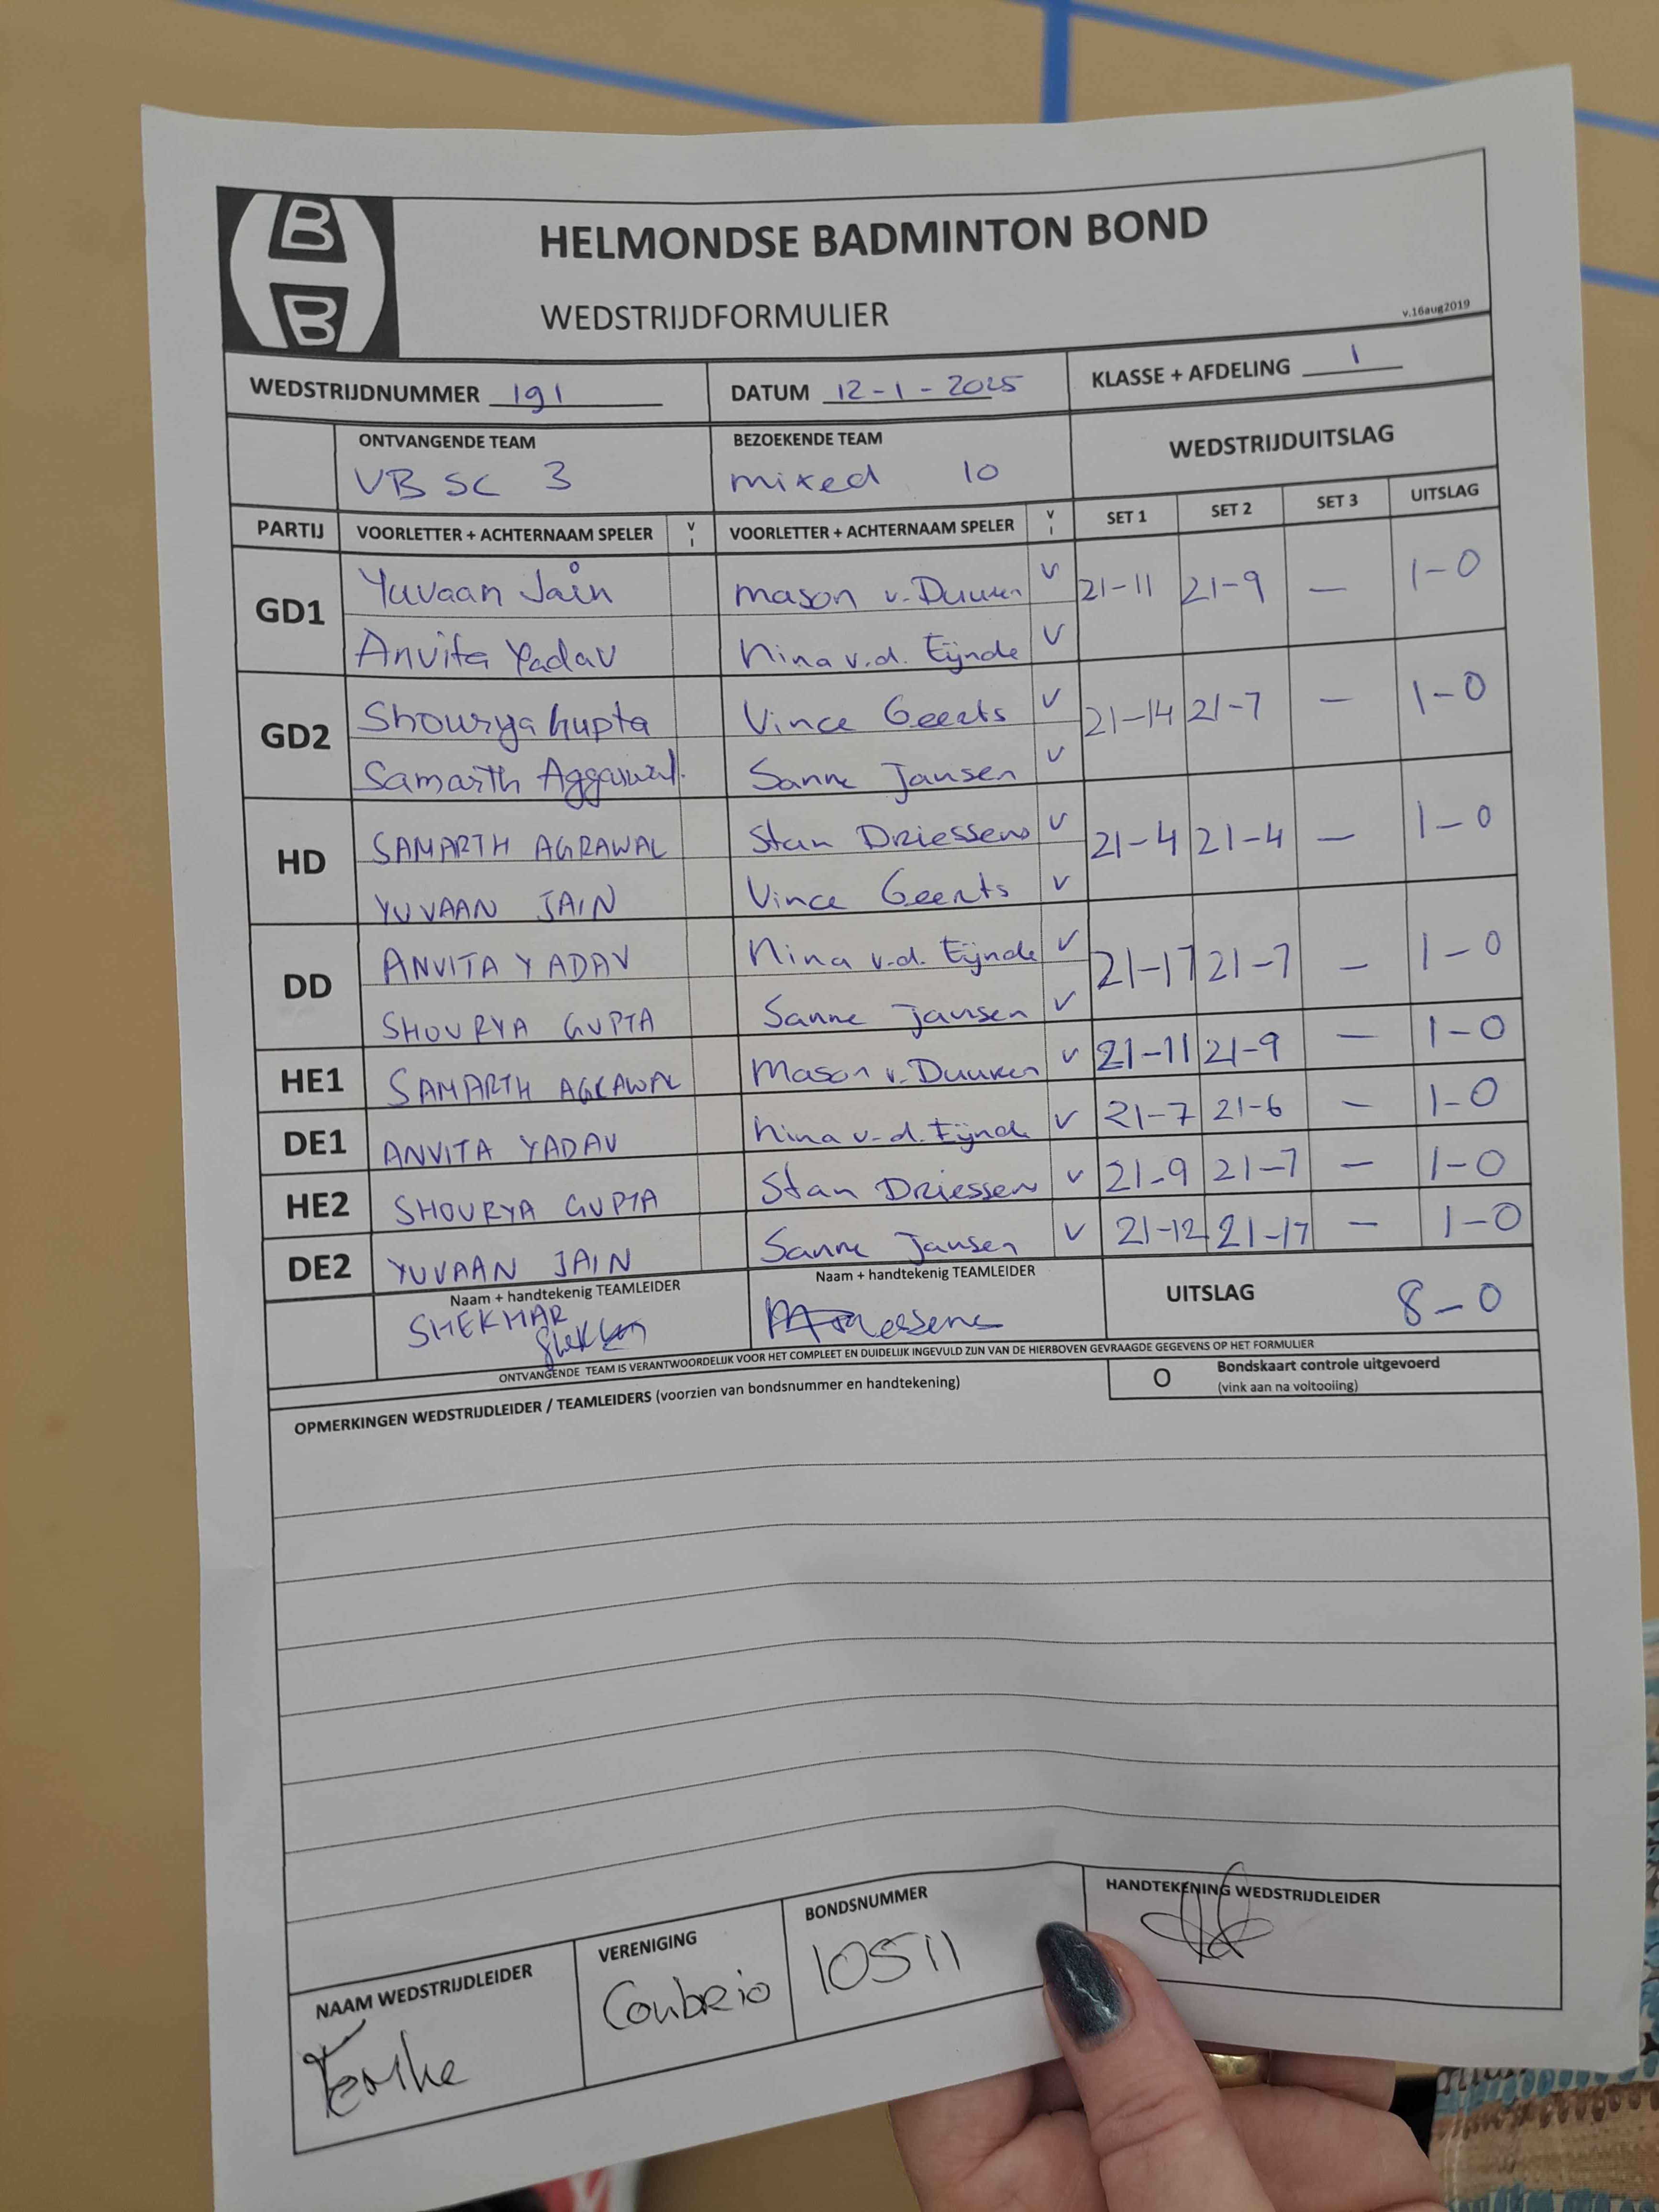 B
B
HELMONDSE BADMINTON BOND
WEDSTRIJDFORMULIER
v.16aug2019
WEDSTRIJDNUMMER 191 DATUM 12-1-2025 KLASSE + AFDELING 1
ONTVANGENDE TEAM BEZOEKENDE TEAM WEDSTRIJDUITSLAG
VBSC 3 mixed 10
PARTIJ VOORLETTER + ACHTERNAAM SPELER V I VOORLETTER + ACHTERNAAM SPELER V I SET 1 SET 2 SET 3 UITSLAG
GD1 Yuvaan Jain mason v. Duuren v 21-11 21-9 — 1-0
Anvita Yadav Nina v.d. Eijnde v
GD2 Shourya Gupta Vince Geerts v 21-14 21-7 — 1-0
Samarth Aggarwal. Sanne Jansen v
HD SAMARTH AGRAWAL Stan Driessens v 21-4 21-4 — 1-0
YUVAAN JAIN Vince Geerts v
DD ANVITA YADAV Nina v.d. Eijnde v 21-17 21-7 — 1-0
SHOURYA GUPTA Sanne Jansen v
HE1 SAMARTH AGRAWAL Mason v. Duuren v 21-11 21-9 — 1-0
DE1 ANVITA YADAV Nina v.d. Eijnde v 21-7 21-6 — 1-0
HE2 SHOURYA GUPTA Stan Driessens v 21-9 21-7 — 1-0
DE2 YUVAAN JAIN Sanne Jansen v 21-12 21-17 — 1-0
Naam + handtekenig TEAMLEIDER Naam + handtekenig TEAMLEIDER UITSLAG 8-0
SHEKHAR
ONTVANGENDE TEAM IS VERANTWOORDELIJK VOOR HET COMPLEET EN DUIDELIJK INGEVULD ZIJN VAN DE HIERBOVEN GEVRAAGDE GEGEVENS OP HET FORMULIER
OPMERKINGEN WEDSTRIJDLEIDER / TEAMLEIDERS (voorzien van bondsnummer en handtekening) O Bondskaart controle uitgevoerd
(vink aan na voltooiing)
NAAM WEDSTRIJDLEIDER VERENIGING BONDSNUMMER HANDTEKENING WEDSTRIJDLEIDER
Conbrio 10511